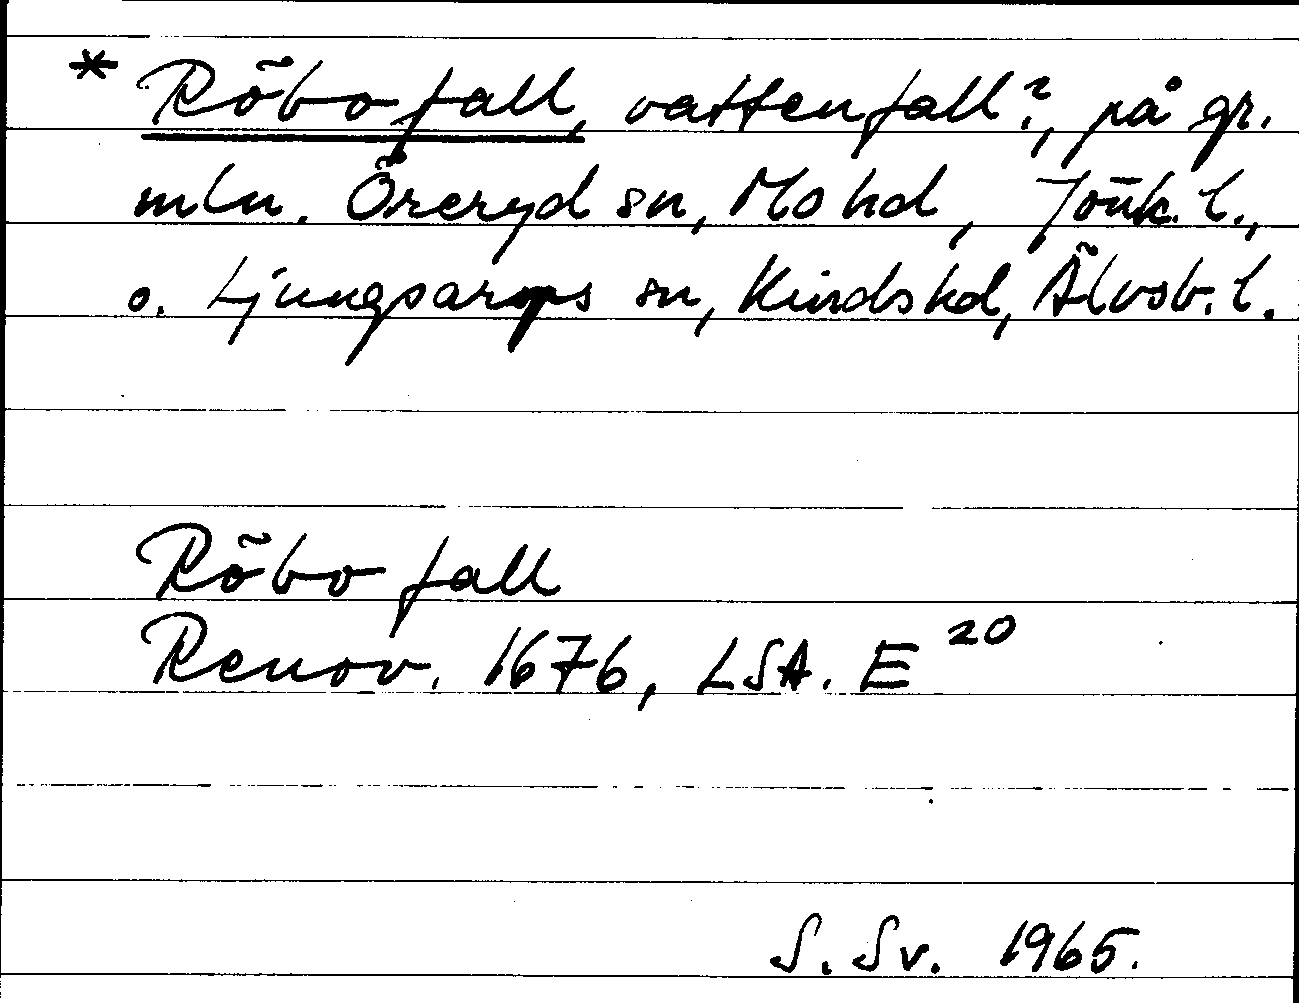 * Röbo fall, vattenfall?, på gr.
mln. Öreryd sn, Mo hd, Jönk. l.,
o. Ljungsarps sn, Kinds hd, Älvsb. l.
Röbo fall
Renov. 1676, LSA. E 20
S. Sv. 1965.